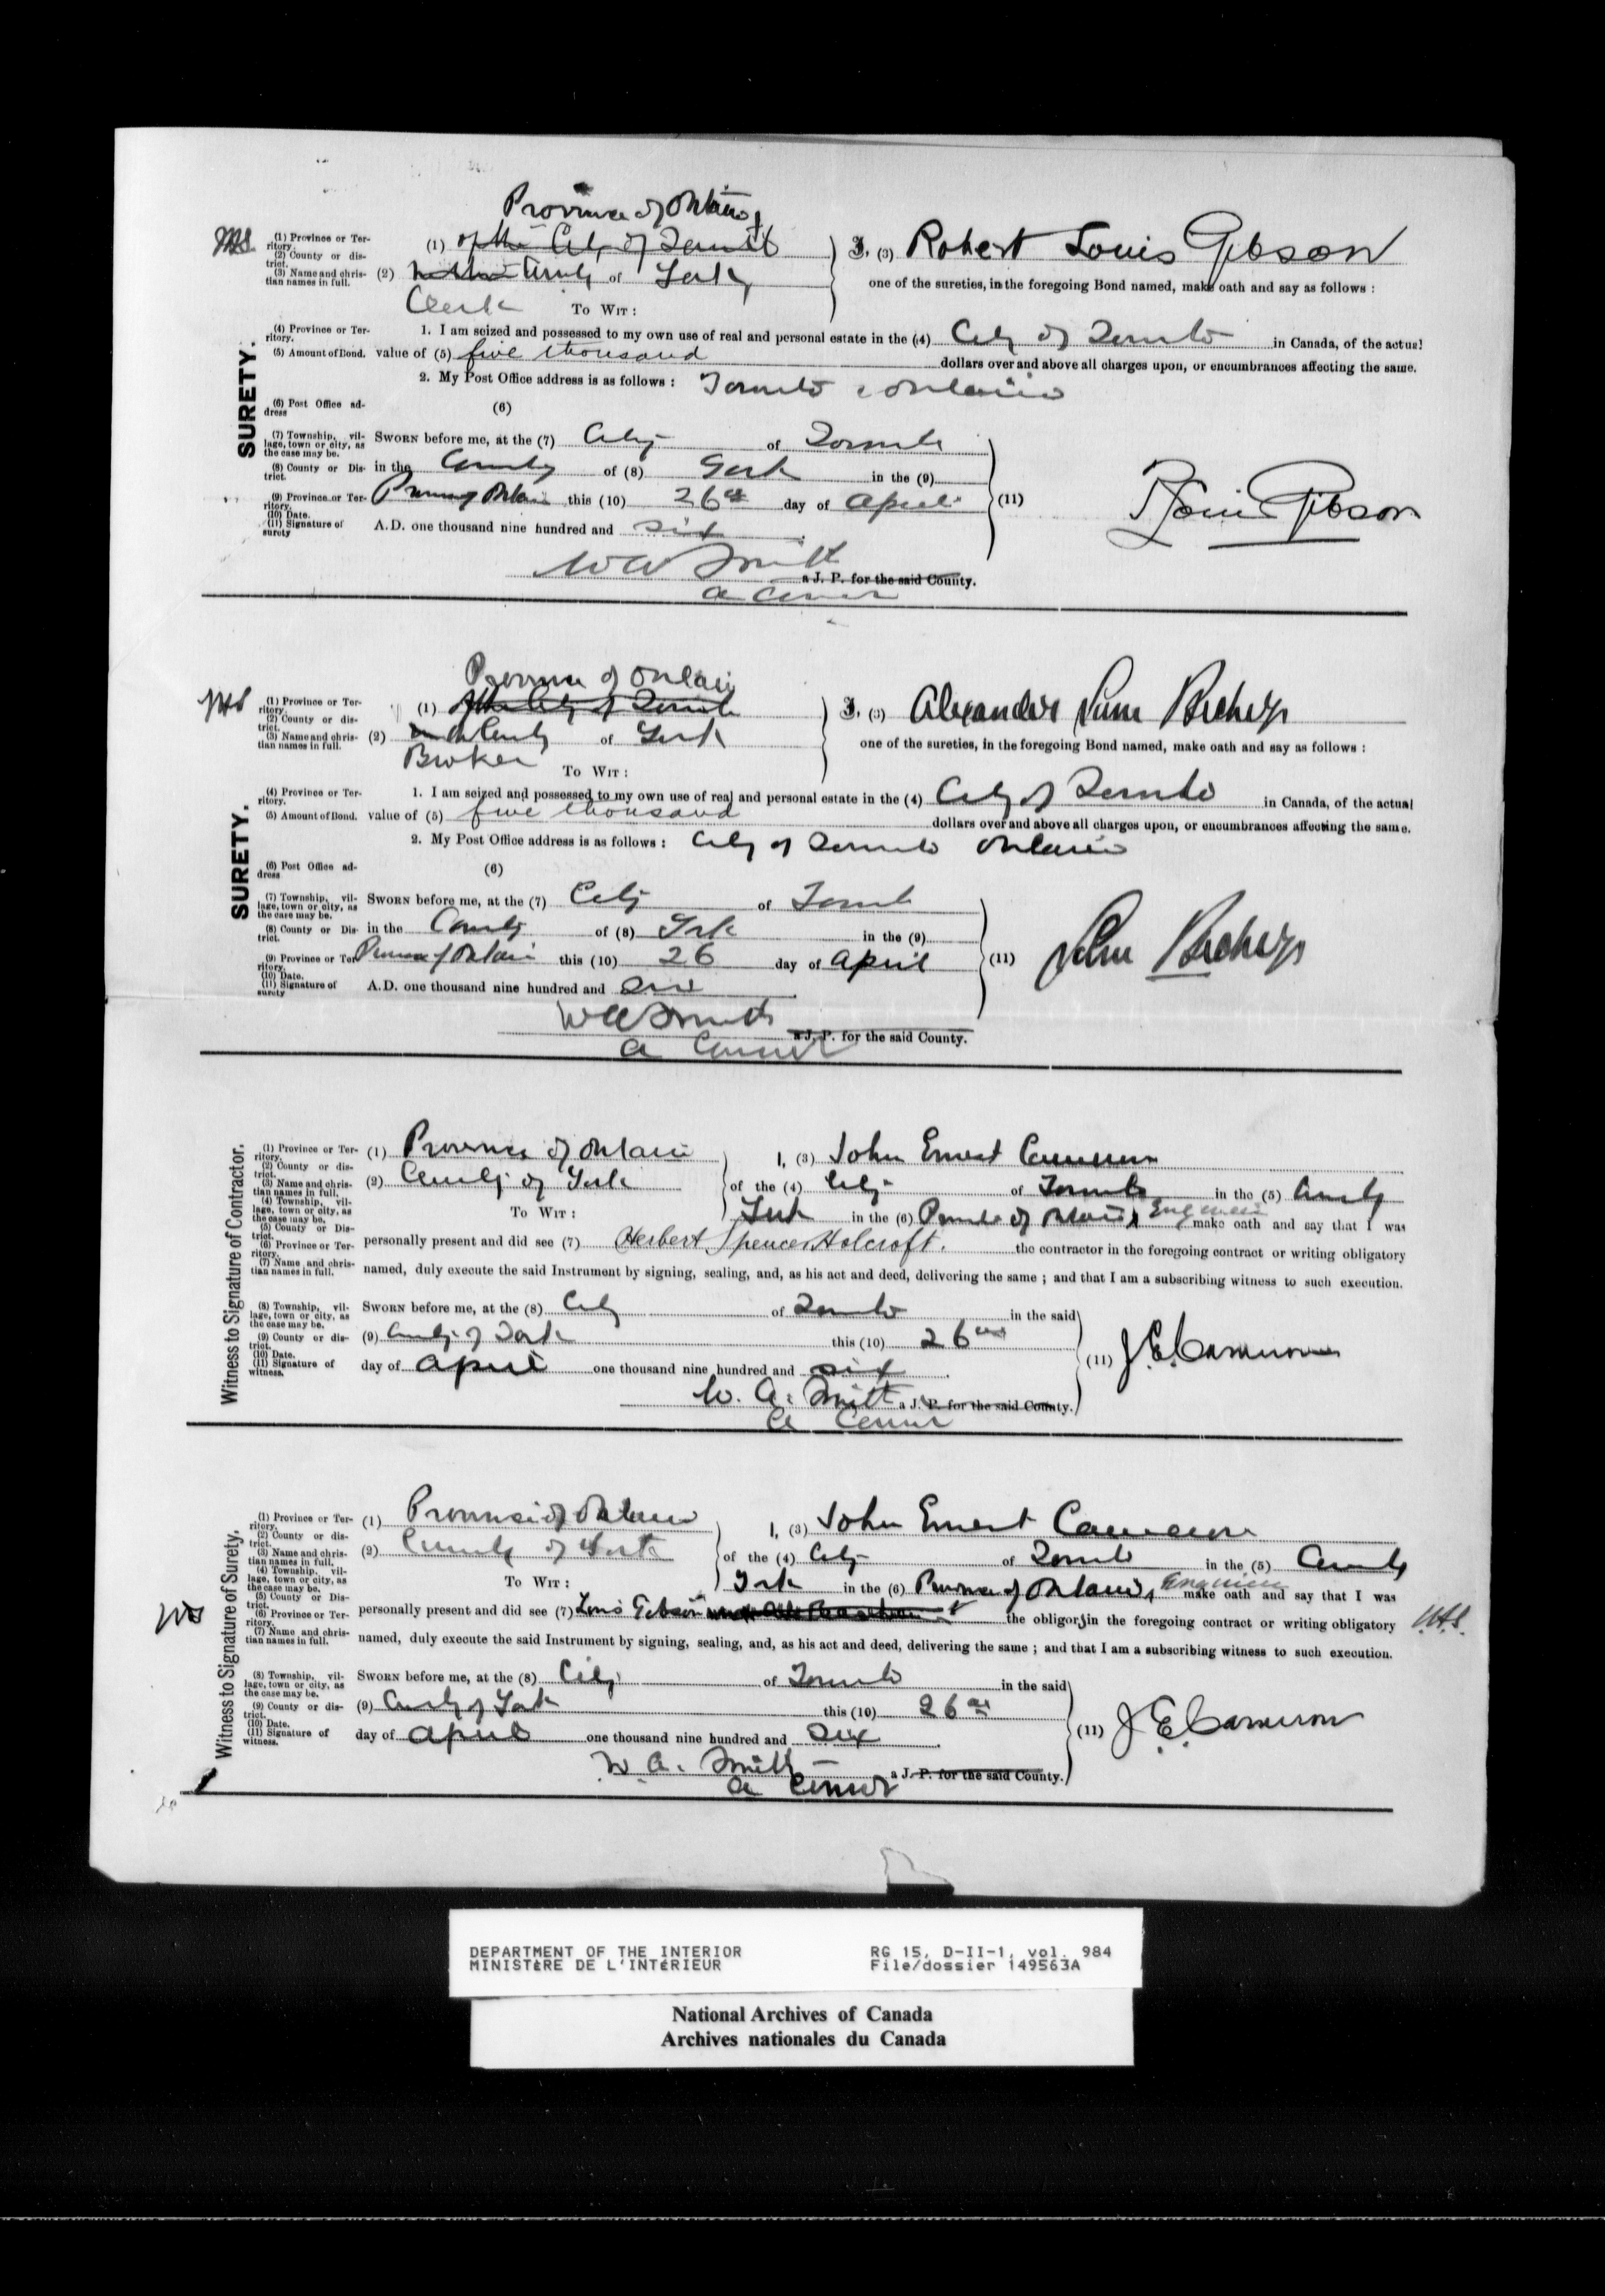 Province of Ontario
(1) Province or Territory.
(2) County or district.
(3) Name and christian names in full.
(1) of the City of Toronto
(2) in the County of York
Clerk
To Wit:
I, (3) Robert Louis Gibson
one of the sureties, in the foregoing Bond named, make oath and say as follows:
SURETY.
(4) Province or Territory.
1. I am seized and possessed to my own use of real and personal estate in the (4) City of Toronto in Canada, of the actual
(5) Amount of Bond.
value of (5) five thousand dollars over and above all charges upon, or encumbrances affecting the same.
2. My Post Office address is as follows: Toronto Ontario
(6) Post Office address
(6)
(7) Township, village, town or city, as the case may be.
Sworn before me, at the (7) City of Toronto
(8) County or District.
in the County of (8) York in the (9)
(9) Province or Territory.
Province of Ontario this (10) 26th day of April
(10) Date.
(11) Signature of surety
A.D. one thousand nine hundred and six
(11) R Louis Gibson
W A Smith
a J. P. for the said County.
Province of Ontario
(1) Province or Territory.
(2) County or district.
(3) Name and christian names in full.
(1) of the City of Toronto
(2) in the County of York
Broker
To Wit:
I, (3) Alexander
one of the sureties, in the foregoing Bond named, make oath and say as follows:
SURETY.
(4) Province or Territory.
1. I am seized and possessed to my own use of real and personal estate in the (4) City of Toronto in Canada, of the actual
(5) Amount of Bond.
value of (5) five thousand dollars over and above all charges upon, or encumbrances affecting the same.
2. My Post Office address is as follows: City of Toronto Ontario
(6) Post Office address
(6)
(7) Township, village, town or city, as the case may be.
Sworn before me, at the (7) City of Toronto
(8) County or District.
in the County of (8) York in the (9)
(9) Province or Territory.
Province of Ontario this (10) 26 day of April
(10) Date.
(11) Signature of surety
A.D. one thousand nine hundred and six
(11)
W A Smith
a J. P. for the said County.
Witness to Signature of Contractor.
(1) Province or Territory.
(2) County or district.
(3) Name and christian names in full.
(4) Township, village, town or city, as the case may be.
(5) County or District.
(6) Province or Territory.
(7) Name and christian names in full.
(1) Province of Ontario
(2) County of York
To Wit:
I, (3) John Ernest Cameron
of the (4) City of Toronto in the (5) County
York in the (6) Province of Ontario, Engineer make oath and say that I was
personally present and did see (7) Herbert Spencer Holcroft. the contractor in the foregoing contract or writing obligatory
named, duly execute the said Instrument by signing, sealing, and, as his act and deed, delivering the same; and that I am a subscribing witness to such execution.
(8) Township, village, town or city, as the case may be.
Sworn before me, at the (8) City of Toronto in the said
(9) County or district.
(9) County of York this (10) 26th
(10) Date.
(11) Signature of witness.
day of April one thousand nine hundred and six.
(11) J. E. Cameron
W. A. Smith a J. P. for the said County.
Witness to Signature of Surety.
(1) Province or Territory.
(2) County or district.
(3) Name and christian names in full.
(4) Township, village, town or city, as the case may be.
(5) County or District.
(6) Province or Territory.
(7) Name and christian names in full.
(1) Province of Ontario
(2) County of York
To Wit:
I, (3) John Ernest Cameron
of the (4) City of Toronto in the (5) County
York in the (6) Province of Ontario, Engineer make oath and say that I was
personally present and did see (7) Louis Gibson the obligor in the foregoing contract or writing obligatory
named, duly execute the said Instrument by signing, sealing, and, as his act and deed, delivering the same; and that I am a subscribing witness to such execution.
(8) Township, village, town or city, as the case may be.
Sworn before me, at the (8) City of Toronto in the said
(9) County or district.
(9) County of York this (10) 26th
(10) Date.
(11) Signature of witness.
day of April one thousand nine hundred and six.
(11) J. E. Cameron
W. A. Smith a J. P. for the said County.
DEPARTMENT OF THE INTERIOR
MINISTÈRE DE L'INTÉRIEUR
RG 15, D-II-1, vol. 984
File/dossier 149563A
National Archives of Canada
Archives nationales du Canada